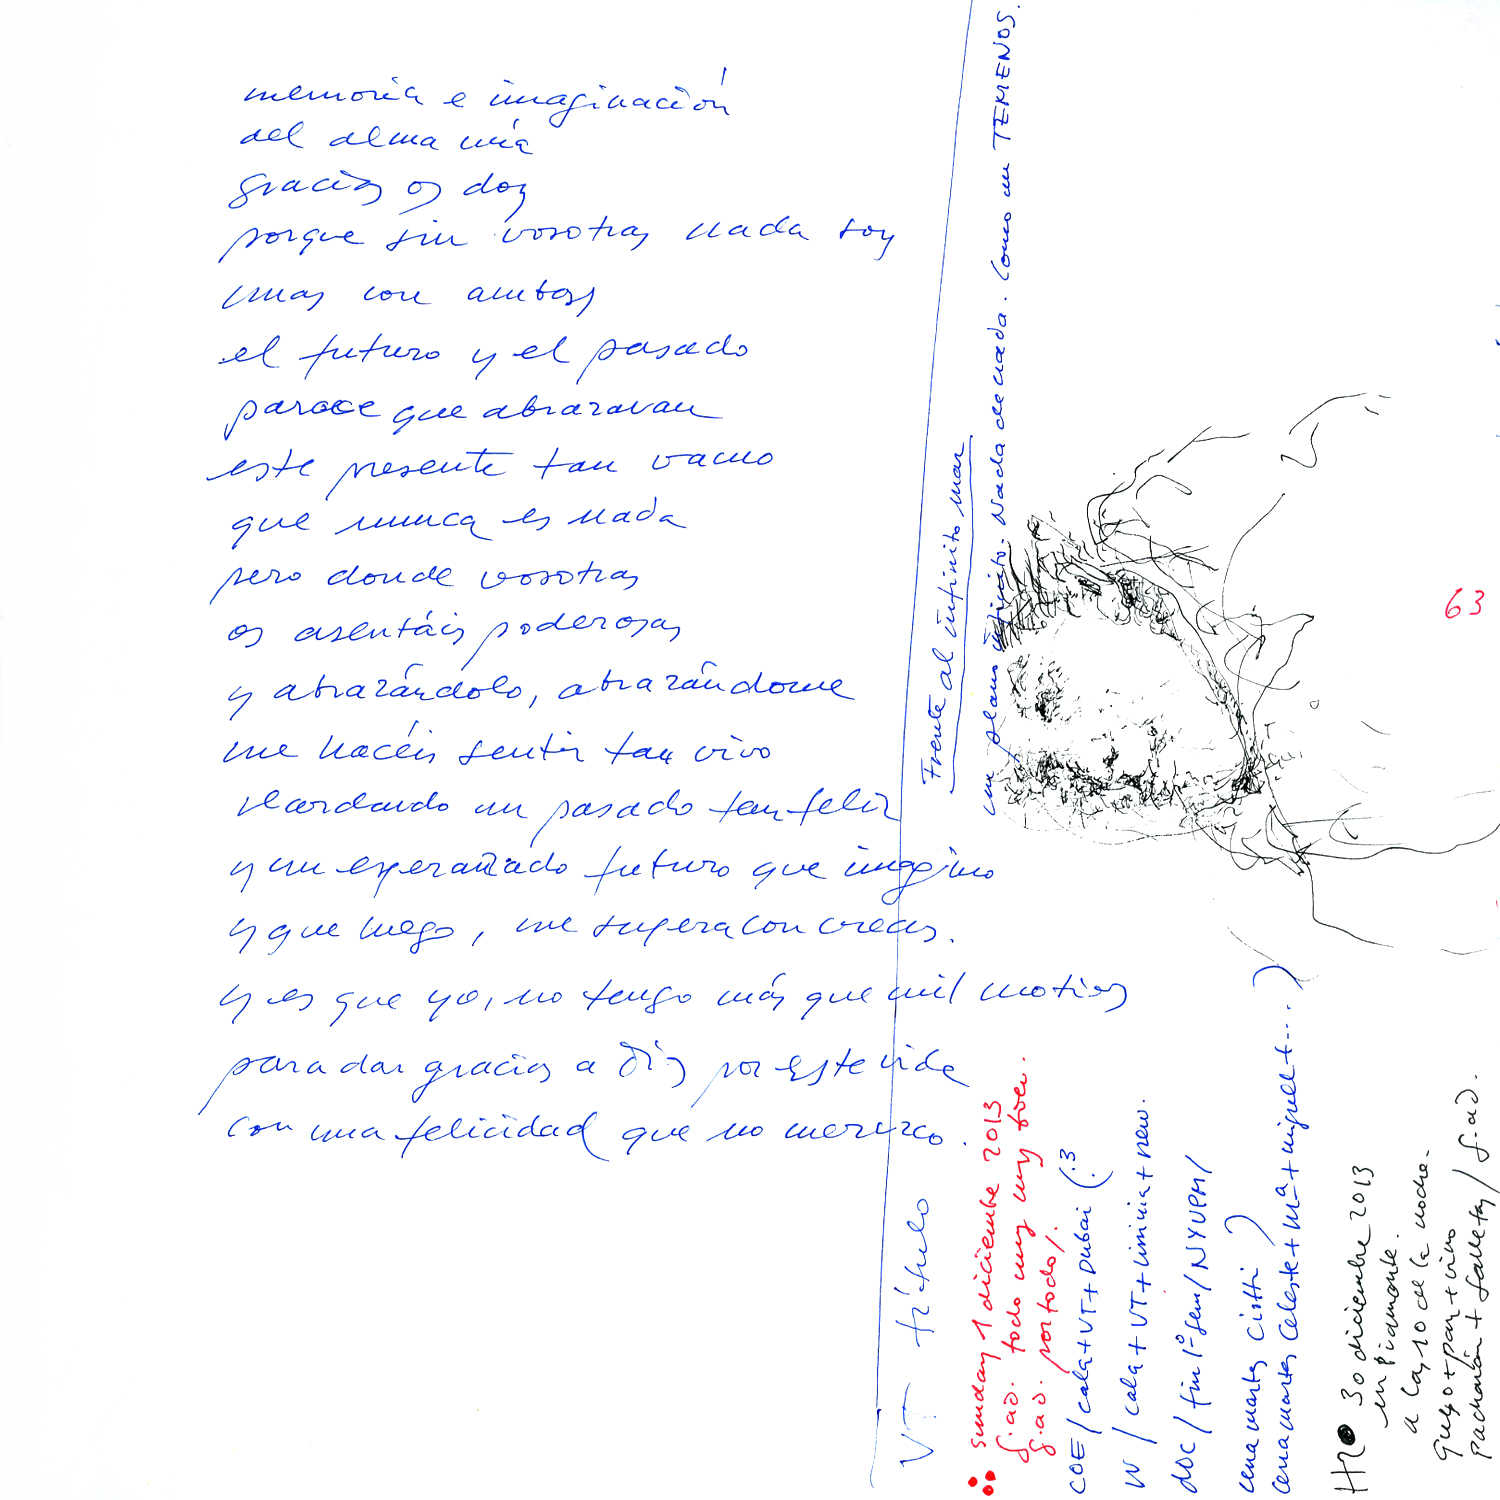 memoria e imaginación
del alma mía
gracias os doy
porque sin vosotras nada soy
mas con ambas
el futuro y el pasado
parece que abrazavan
este presente tan vacuo
que nunca es nada
pero donde vosotras
os asentáis poderosas
y abrazándolo, abrazándome
me hacéis sentir tan vivo
recordando un pasado tan feliz
y un esperanzado futuro que imagino
y que luego, me supera con creces.
y es que yo, no tengo más que mil motivos
para dar gracias a Dios por este vida
con una felicidad que no merezco.
Frente al infinito mar
un plano infinito. Nada de nada. Como un TEMENOS.
63
VT título
sunday 1 diciembre 2013
g.a.d. todo muy muy bien.
g.a.d. por todo/.
COE / cala + VT + Dubai (.3
W / cala + VT + liminia + new.
DOC / fin 1º sem / NYUPM /
cena martes Ciotti )
cena martes Celeste + Mª + miguel + ... )
30 diciembre 2013
en Piamonte.
a las 10 de la noche.
queso + pan + vino
pacharán + galletas / g.a.d.